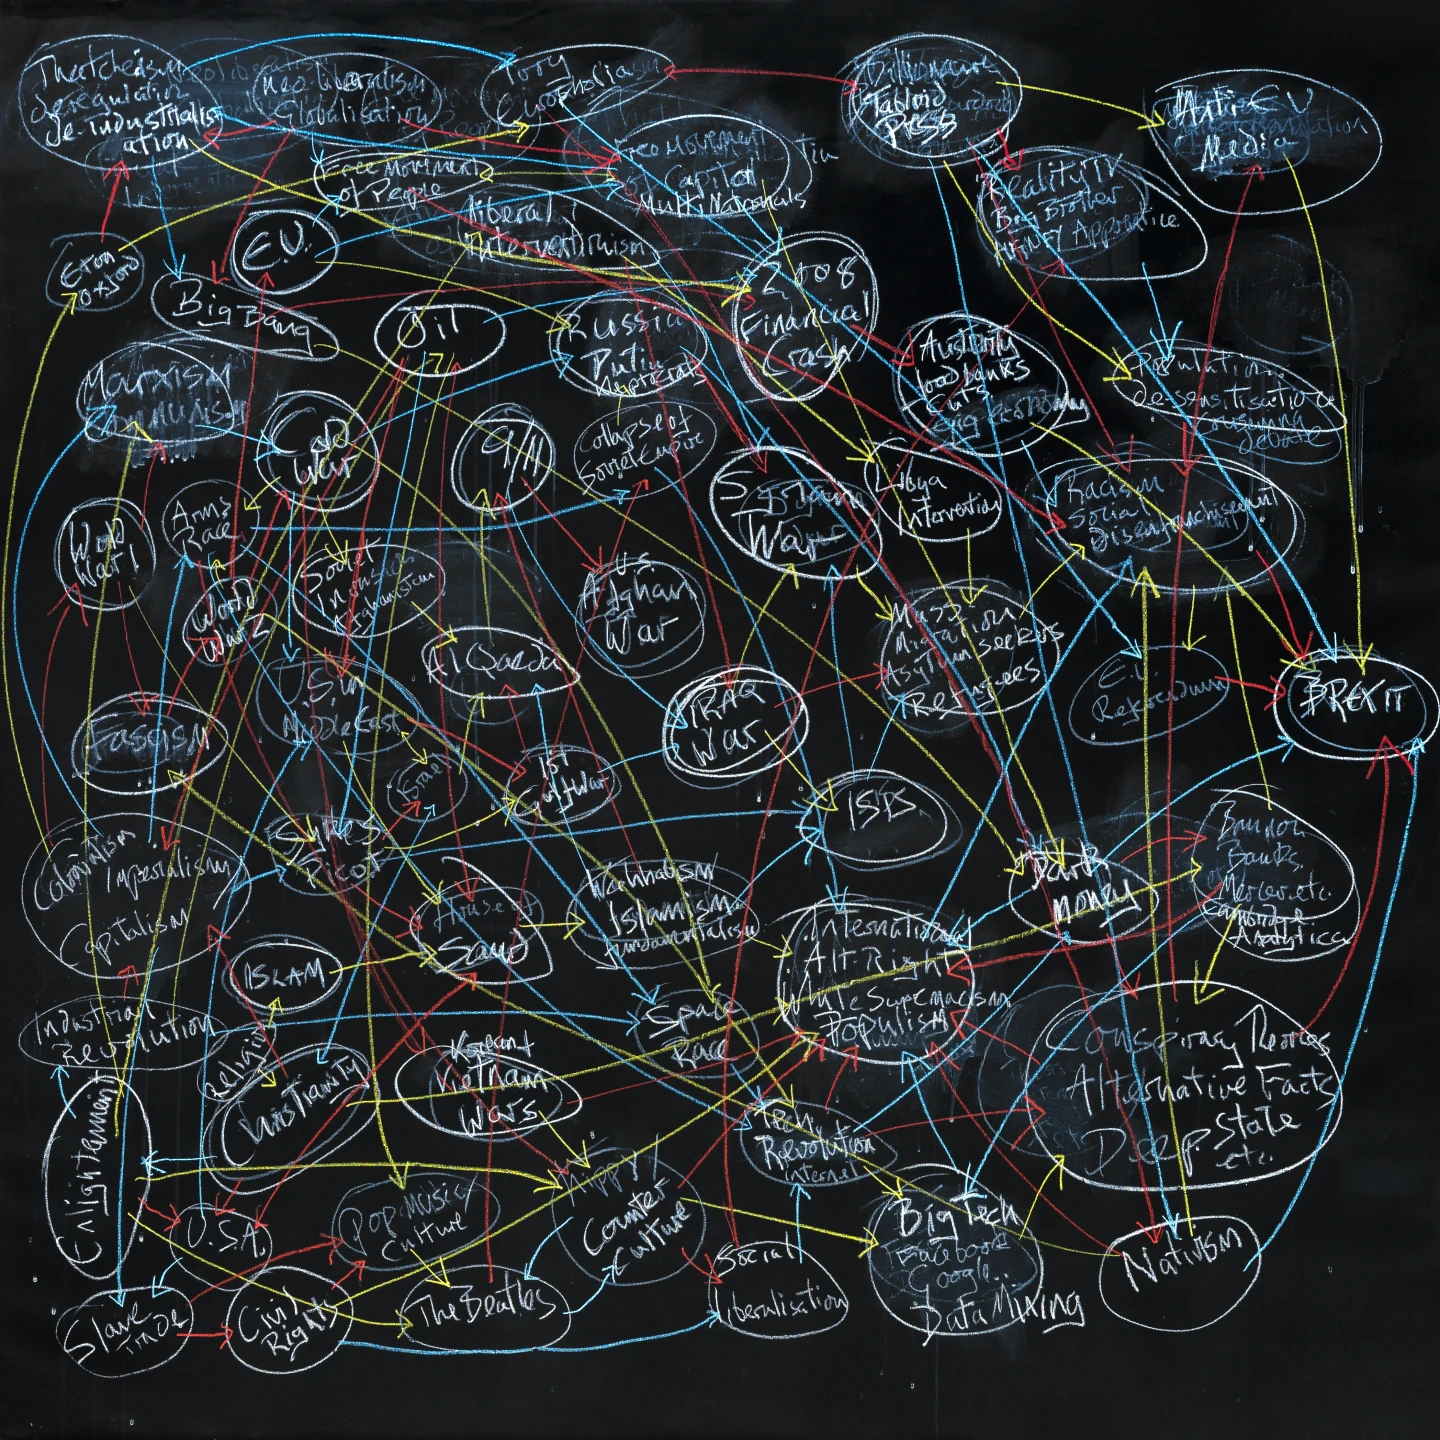 Thatcherism
deregulation
de-industrialis
ation
Neo liberalism
Globalisation
Tory
Euorphobiasm
Billionaire
Tabloid
Press
Anti E.U
Media
Free Movment
of People
Free Movement
of Capital
Multi Nationals
Reality TV
Big Brother
Apprentice
liberal
interventionism
E.U.
Eton
oxford
Big Bang
Oil
Russia
Putin
kleptocrats
2008
Financial
Crash
Austerity
foodbanks
Cuts
Gig economy
Population
de-ssensitisation
consuming
debate
Marxism
Communism
Cold
War
9/11
Collapse of
Soviet Empire
Syrian
War
Libya
Intervention
Racism
Social
Disenfranchisement
World
War 1
Arms
Race
World
War 2
Soviet
Invasion
Afghanistan
U.S.
Afghan
War
Mass
Migration
Asylum seekers
Refugees
Al Qaeda
E.U.
Referendum
BREXIT
IRAQ
War
Fascism
U.S in
Middle East
Israel
1st
Gulf War
ISIS
Colonialism
Imperialism
Capitalism
Sykes
Picot
House of
Saud
Wahhabism
Islamism
fundamentalism
Dark
money
Bannon
Banks,
Mercer etc.
Cambridge
Analytica
International
Alt-Right
White Supremacism
Populism
ISLAM
Industrial
Revolution
Religion
Christianity
Space
Race
Korean +
Vietnam
Wars
Conspiracy Theories
Alternative Facts
Deep State
etc.
Enlightenment
Tech
Revolution
internet
U.S.A.
Pop Music/
Culture
Hippy/
Counter
Culture
Big Tech
Facebook
Google...
Data Mixing
Nativism
Slave
Trade
Civil
Rights
The Beatles
Social
liberalisation